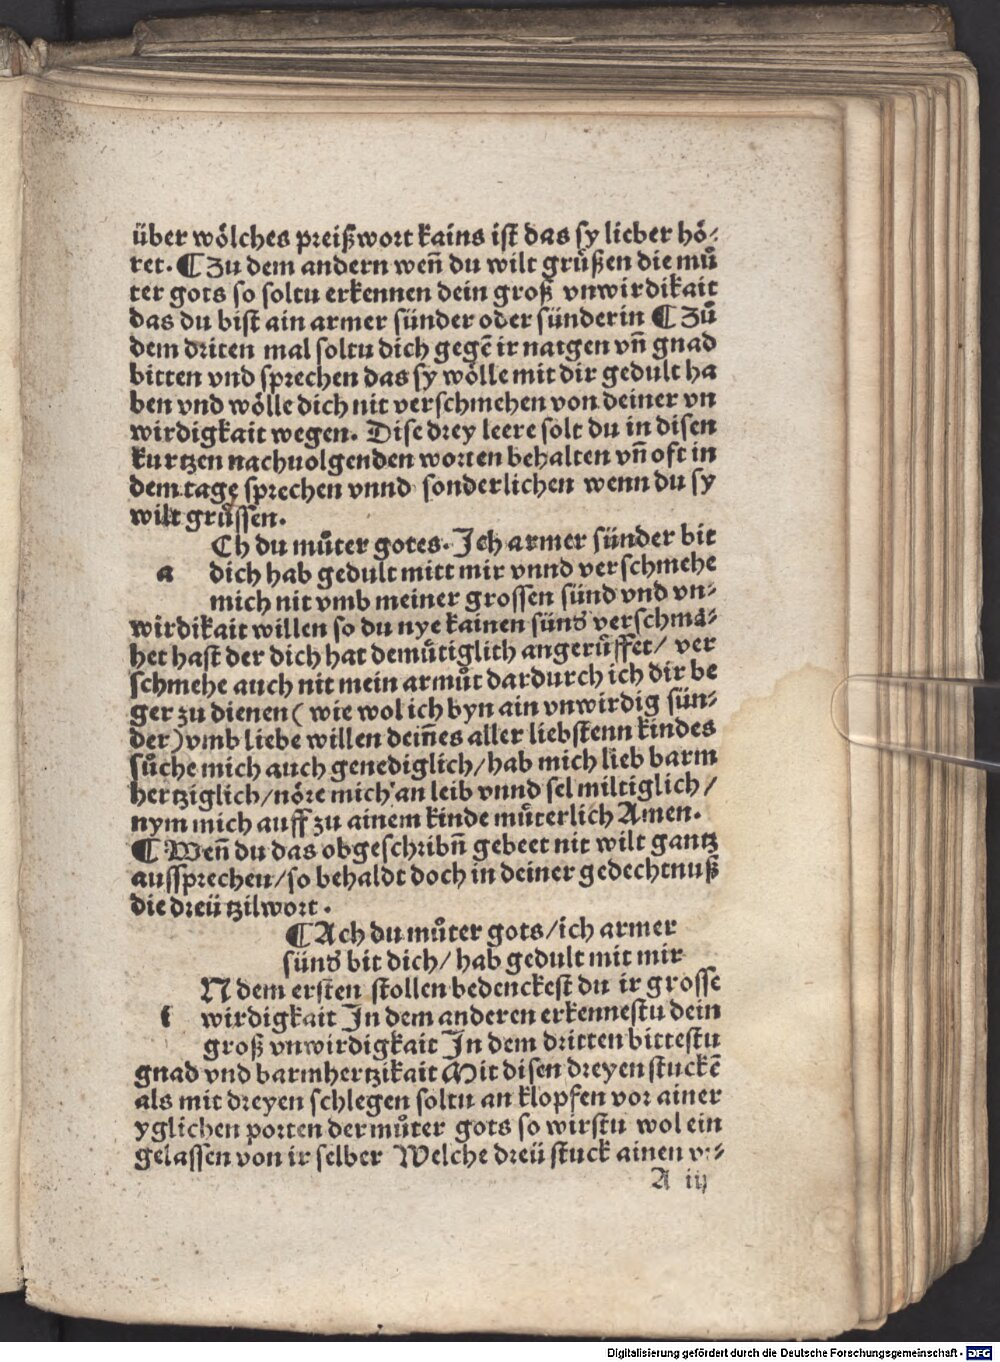 über wölches preißwort kains ist das sy lieber hö⸗
ret. ¶ Zu dem andern weñ du wilt grůßen die mů
ter gots so soltu erkennen dein groß vnwirdikait
das du bist ain armer sünder oder sünderin ¶ Zů
dem driten mal soltu dich gegē ir natgen vñ gnad
bitten vnd sprechen das sy wölle mit dir gedult ha
ben vnd wölle dich nit verschmehen von deiner vn
wirdigkait wegen. Dise drey leere solt du in disen
kurtzen nachuolgenden worten behalten vñ oft in
dem tage sprechen vnnd sonderlichen wenn du sy
wilt grůssen.
Ch du můter gotes. Ich armer sünder bit
a dich hab gedult mitt mir vnnd verschmehe
mich nit vmb meiner grossen sünd vnd vn⸗
wirdikait willen so du nye kainen sünd verschma⸗
het hast der dich hat demůtiglith angerůffet/ ver
schmehe auch nit mein armůt dardurch ich dir be
ger zu dienen ( wie wol ich byn ain vnwirdig sün⸗
der) vmb liebe willen deiñes aller liebstenn kindes
sůche mich auch genediglich/ hab mich lieb barm
hertziglich/ nöre mich an leib vnnd sel miltiglich/
nym mich auff zu ainem kinde můterlich Amen.
¶ Weñ du das obgeschribñ gebeet nit wilt gantz
aussprechen/ so behaldt doch in deiner gedechtnuß
die dreü tzilwort.
¶ Ach du můter gots/ ich armer
sünd bit dich/ hab gedult mit mir
N dem ersten stollen bedenckest du ir grosse
i wirdigkait In dem anderen erkennestu dein
groß vnwirdigkait In dem dritten bittestu
gnad vnd barmhertzikait Mit disen dreyen stuckē
als mit dreyen schlegen soltu an klopfen vor ainer
yglichen porten der můter gots so wirstu wol ein
gelassen von ir selber Welche dreü stuck ainen
A iij
Digitalisierung gefördert durch die Deutsche Forschungsgemeinschaft - DFG